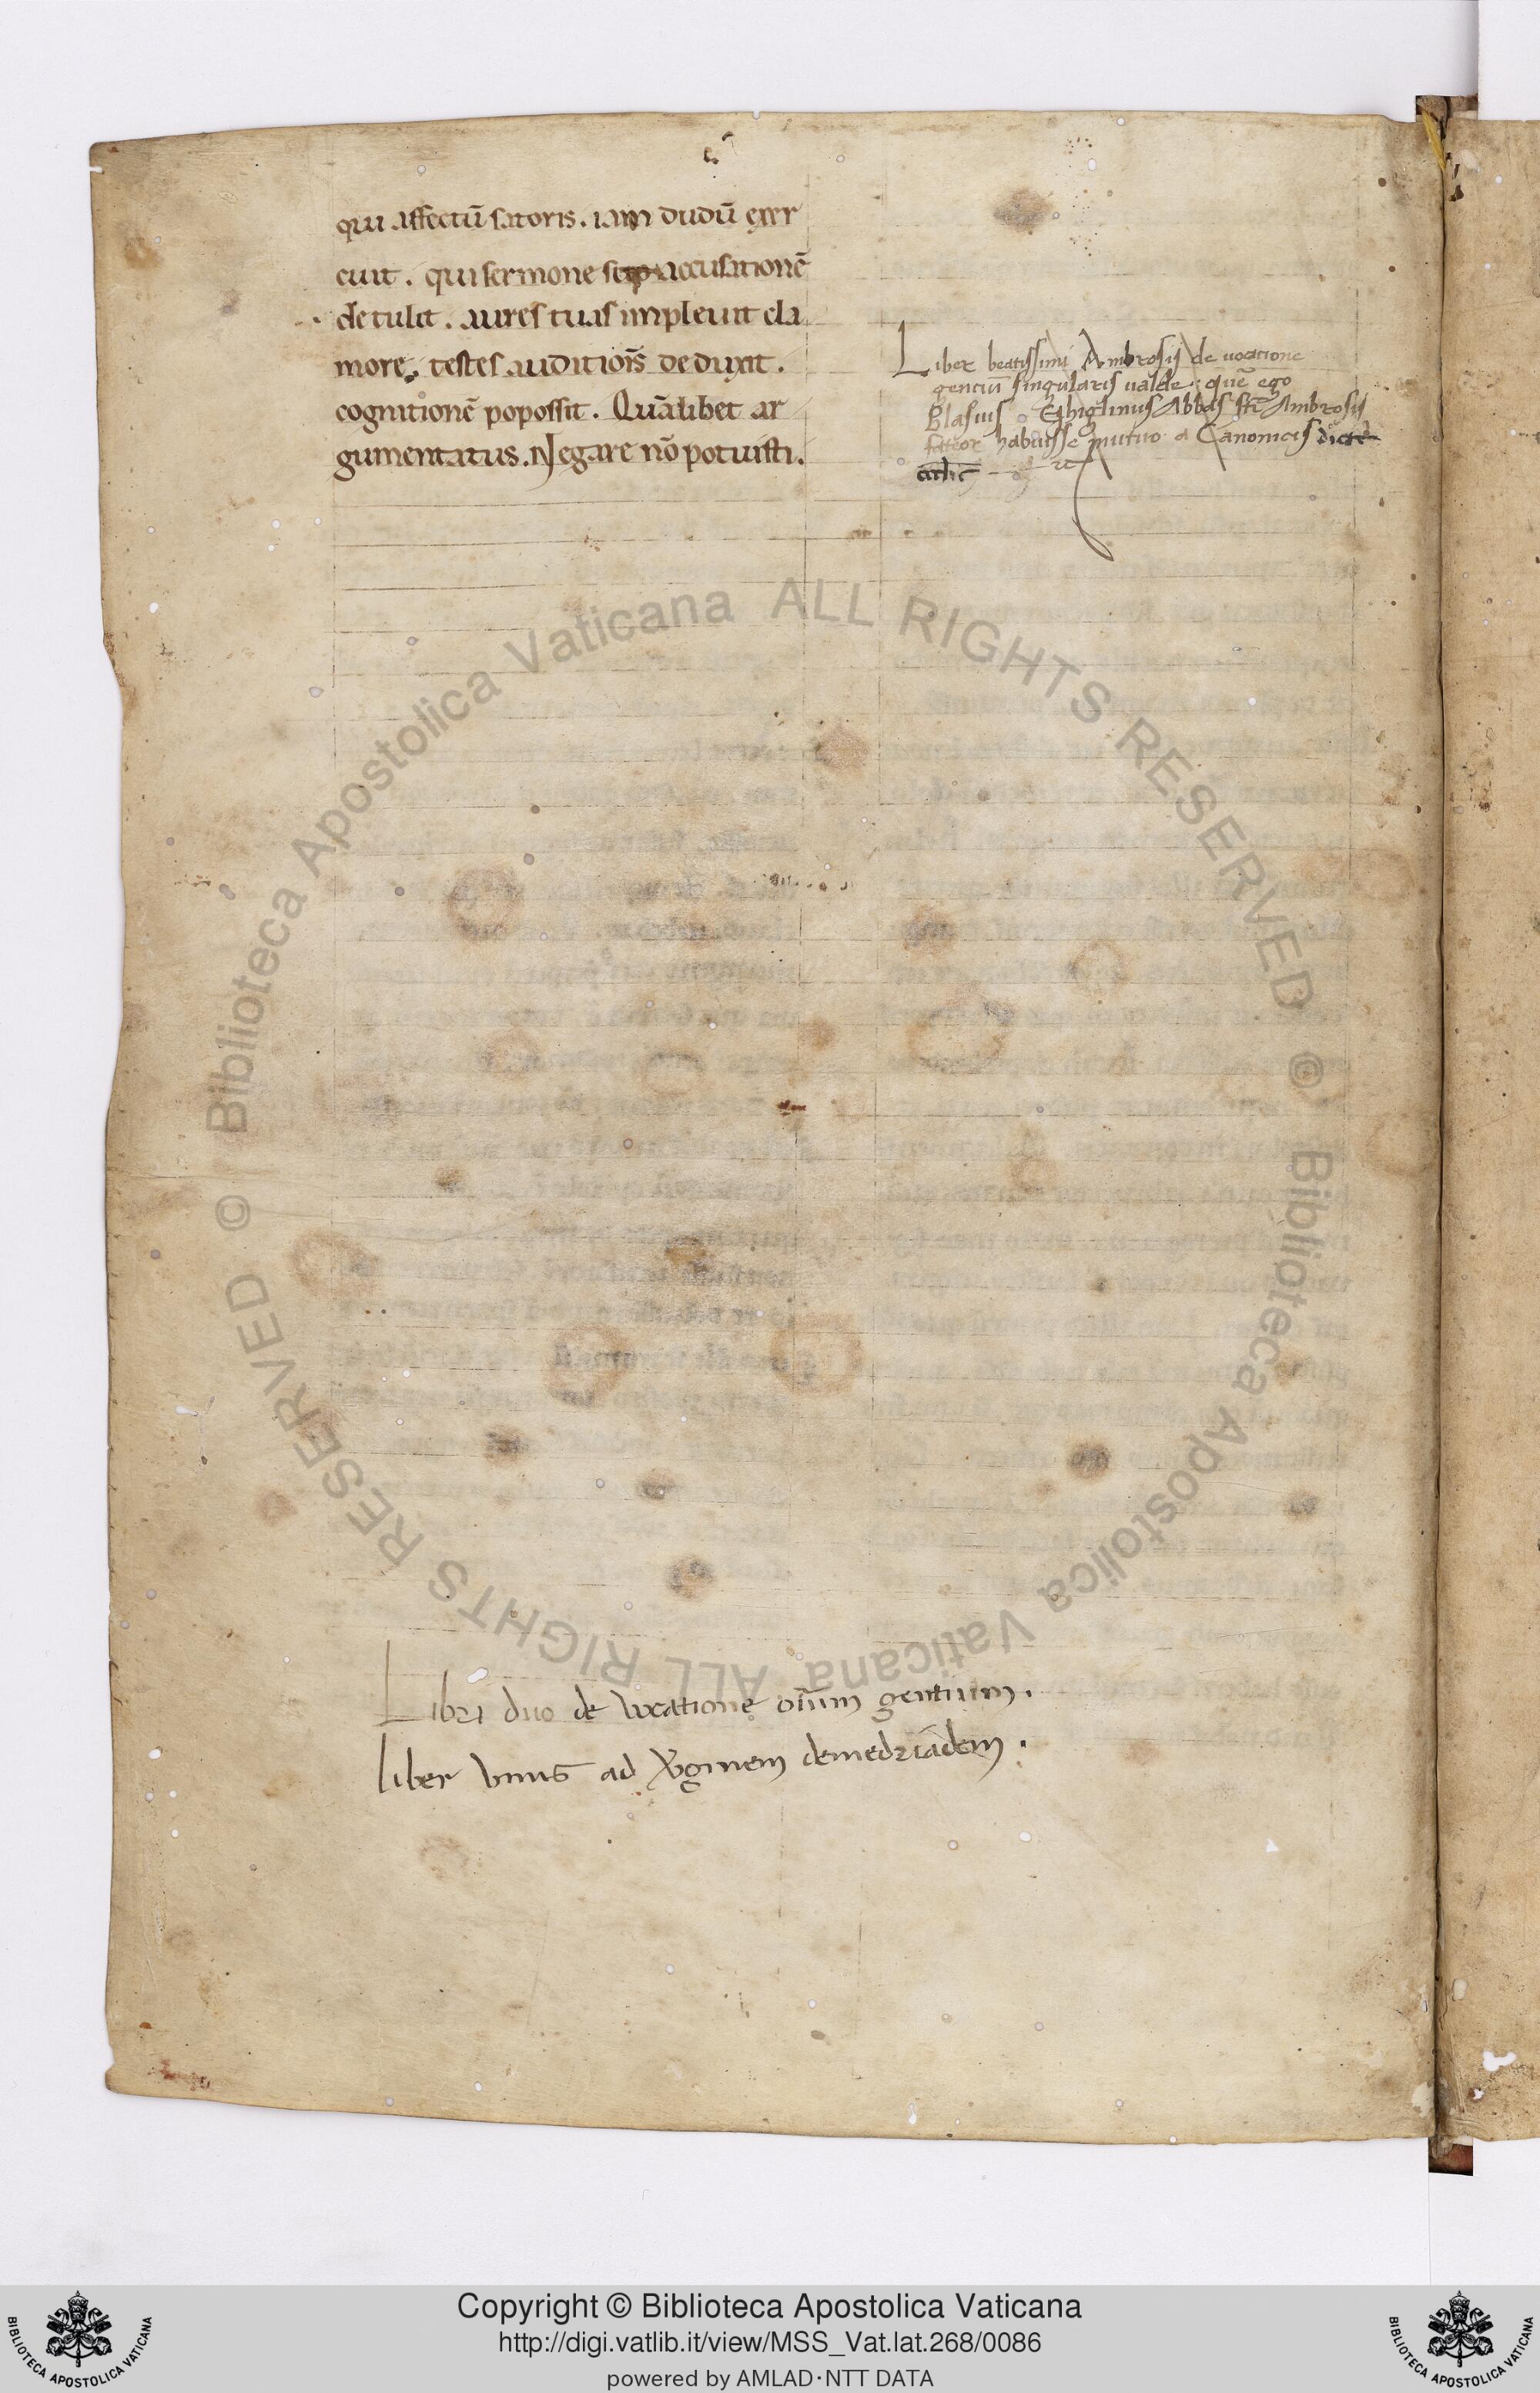 qui affectū satoris. iam dudū exer
cuit. qui sermone accusationē
detulit. aures tuas impleuit cla
more. testes auditiōis deduxit.
cognitionē popossit. Quālibet ar
gumentatus. Negare nō potuisti.
Liber beatissimi Ambrosij de uocatione
gentiū singularis ualde: quē ego
Blasius Ghiglinus Abbas scti Ambrosij
fateor habuisse mutuo a Canonicis
Libri duo de vocatione oīum gentium.
liber vnus ad v̄ginem demedriadem.
© Biblioteca Apostolica Vaticana ALL RIGHTS RESERVED
© Biblioteca Apostolica Vaticana ALL RIGHTS RESERVED
BIBLIOTECA APOSTOLICA VATICANA
Copyright © Biblioteca Apostolica Vaticana
http://digi.vatlib.it/view/MSS_Vat.lat.268/0086
powered by AMLAD·NTT DATA
BIBLIOTECA APOSTOLICA VATICANA